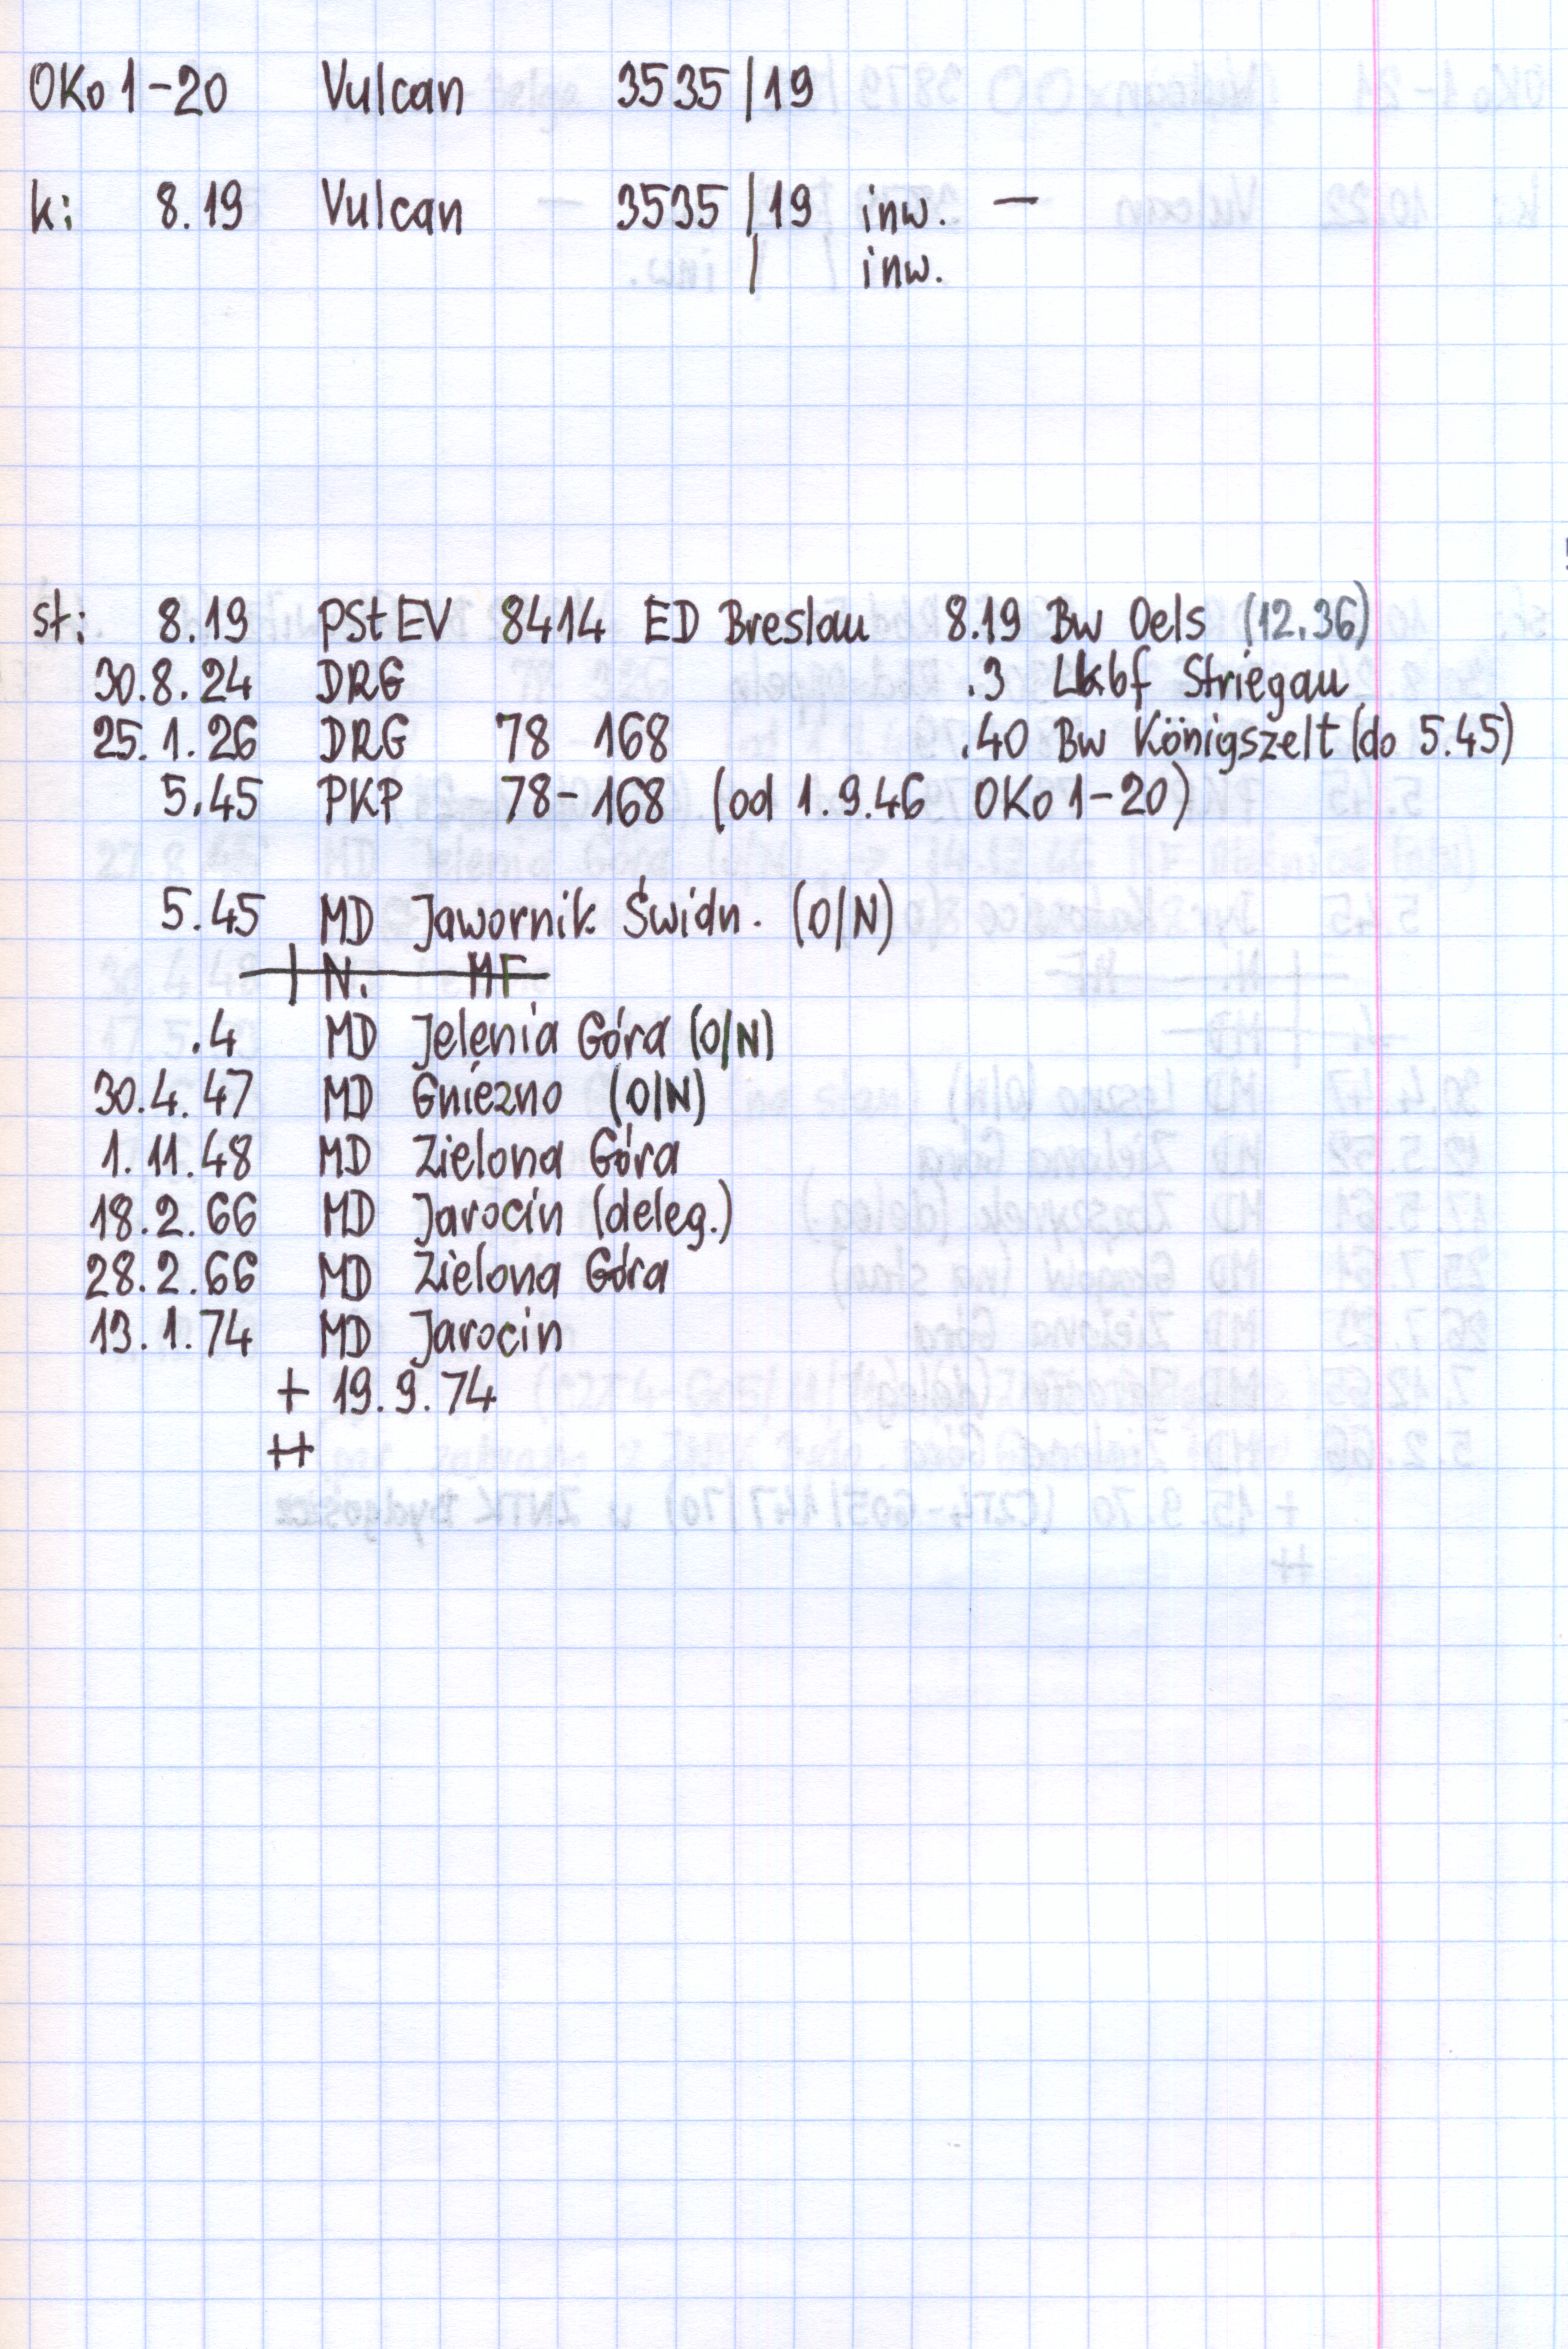 OKo 1-20 Vulcan 3535 | 19
k: 8.19 Vulcan 3535 | 19 inw. —
| inw.
st: 8.19 PStEV 8414 ED Breslau 8.19 Bw Oels (12.36)
30.8.24 DRG .3 Lkbf Striegau
25.1.26 DRG 78 168 .40 Bw Königszelt (do 5.45)
5.45 PKP 78-168 (od 1.9.46 OKo 1-20)
5.45 MD Jawornik Świdn. (O/N)
| N. MF
.4 MD Jelenia Góra (O/N)
30.4.47 MD Gniezno (O/N)
1.11.48 MD Zielona Góra
18.2.66 MD Jarocin (deleg.)
28.2.66 MD Zielona Góra
13.1.74 MD Jarocin
+ 19.9.74
++